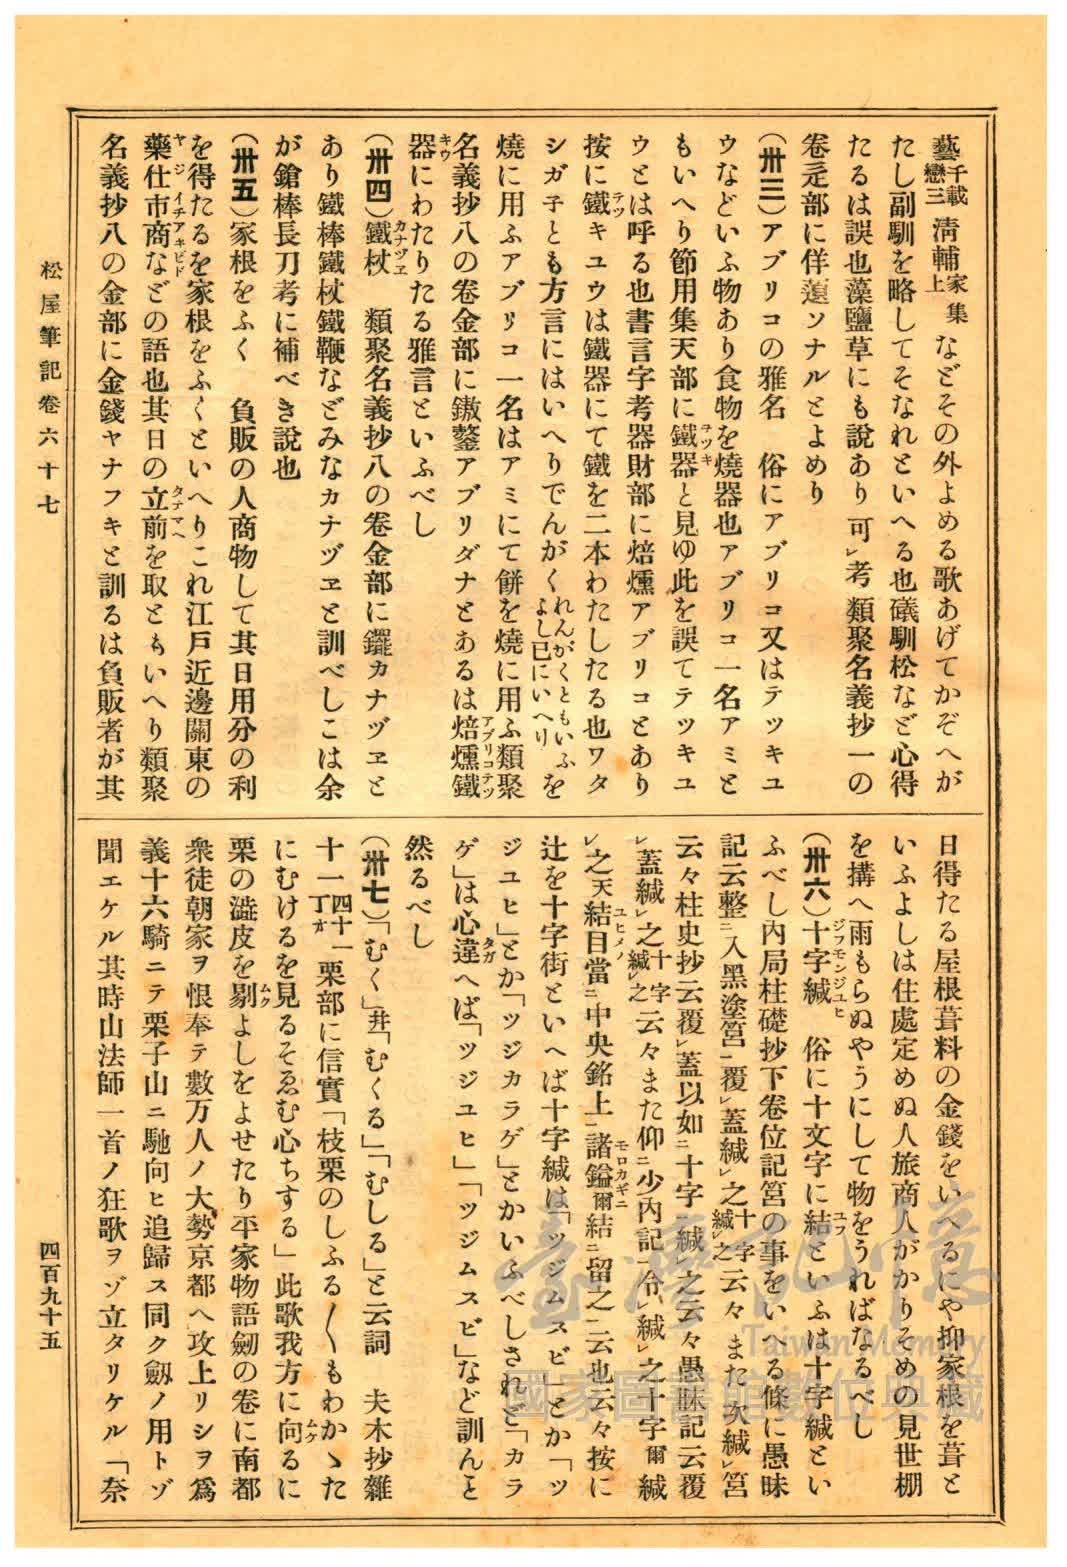 藝千載戀三清輔家集上などその外よめる歌あげてかぞへが
たし副馴を略してそなれといへる也礒馴松など心得
たるは誤也藻鹽草にも說あり可レ考類聚名義抄一の
卷辵部に佯ソナルとよめり
(卅三)アブリコの雅名 俗にアブリコ又はテツキユ
ウなどいふ物あり食物を燒器也アブリコ一名アミと
もいへり節用集天部に鐵器テツキと見ゆ此を誤てテツキユ
ウとは呼る也書言字考器財部に焙燻アブリコとあり
按に鐵テツキユウは鐵器にて鐵を二本わたしたる也ワタ
シガ子とも方言にはいへりでんがくれんがくともいふよし已にいへりを
燒に用ふアブリコ一名はアミにて餅を燒に用ふ類聚
名義抄八の卷金部に鏾鏊アブリダナとあるは焙燻鐵アブリコテツ
器キウにわたりたる雅言といふべし
(卅四)鐵杖カナヅヱ 類聚名義抄八の卷金部に鑼カナヅヱと
あり鐵棒鐵杖鐵鞭などみなカナヅヱと訓べしこは余
が鎗棒長刀考に補べき說也
(卅五)家根をふく 負販の人商物して其日用分の利
を得たるを家根をふくといへりこれ江戶近邊關東の
藥仕市商ヤジイチアキビドなどの語也其日の立前タチマヘを取ともいへり類聚
名義抄八の金部に金錢ヤナフキと訓るは負販者が其
日得たる屋根葺料の金錢をいへるにや抑家根を葺と
いふよしは住處定めぬ人旅商人がかりそめの見世棚
を搆へ雨もらぬやうにして物をうればなるべし
(卅六)十字緘ジフモンジユヒ 俗に十文字に結ユフといふは十字緘とい
ふべし內局柱礎抄下卷位記筥の事をいへる條に愚昧
記云整ニ入黑塗筥一覆レ蓋緘レ之十字緘レ之云々また次緘レ筥
云々柱史抄云覆レ蓋以如ニ十字一緘レ之云々愚昧記云覆
レ蓋緘レ之十字緘レ之云々また仰ニ少內記一令レ緘レ之十字爾緘
レ之天結目ユヒメノ當ニ中央銘上一諸鎰モロカギニ爾結ニ留之一云也云々按に
辻を十字街といへば十字緘は「ツジムスビ」とか「ツ
ジユヒ」とか「ツジカラゲ」とかいふべしされど「カラ
ゲ」は心違タガへば「ツジユヒ」「ツジムスビ」など訓んと
然るべし
(卅七)「むく」幷「むくる」「むしる」と云詞 夫木抄雜
十一四十一丁オ栗部に信實「枝栗のしふる〳〵もわかゝた
にむけるを見るそゑむ心ちする」此歌我方に向ムケるに
栗の澁皮を剝ムクよしをよせたり平家物語劒の卷に南都
衆徒朝家ヲ恨奉テ數万人ノ大勢京都ヘ攻上リシヲ爲
義十六騎ニテ栗子山ニ馳向ヒ追歸ス同ク劔ノ用トゾ
聞エケル其時山法師一首ノ狂歌ヲゾ立タリケル「奈
松屋筆記卷六十七
四百九十五
臺灣記憶
Taiwan Memory
國家圖書館數位典藏